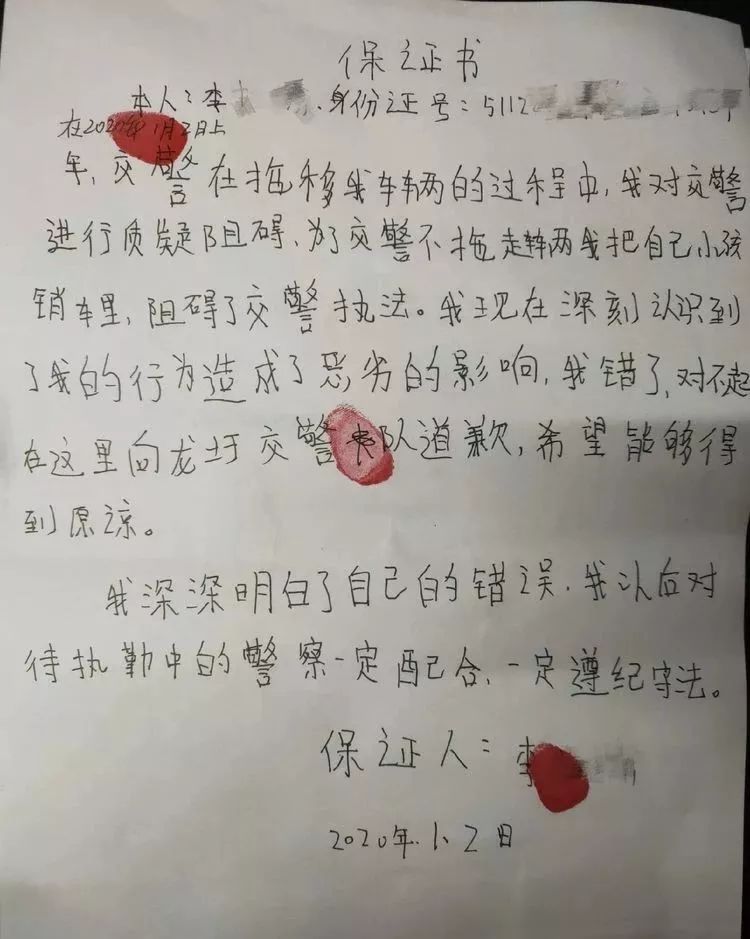 保证书
本人：李 身份证号：5112
在2020年1月2日上
午，交警在拖移我车辆的过程中，我对交警
进行质疑阻碍、为了交警不拖走车辆我把自己小孩
销车里，阻碍了交警执法。我现在深刻认识到
了我的行为造成了恶劣的影响，我错了，对不起
在这里向龙圩交警大队道歉，希望能够得
到原凉。
我深深明白了自己的错误．我以后对
待执勤中的警察一定配合、一定遵纪守法。
保证人：李
2020年.1、2日